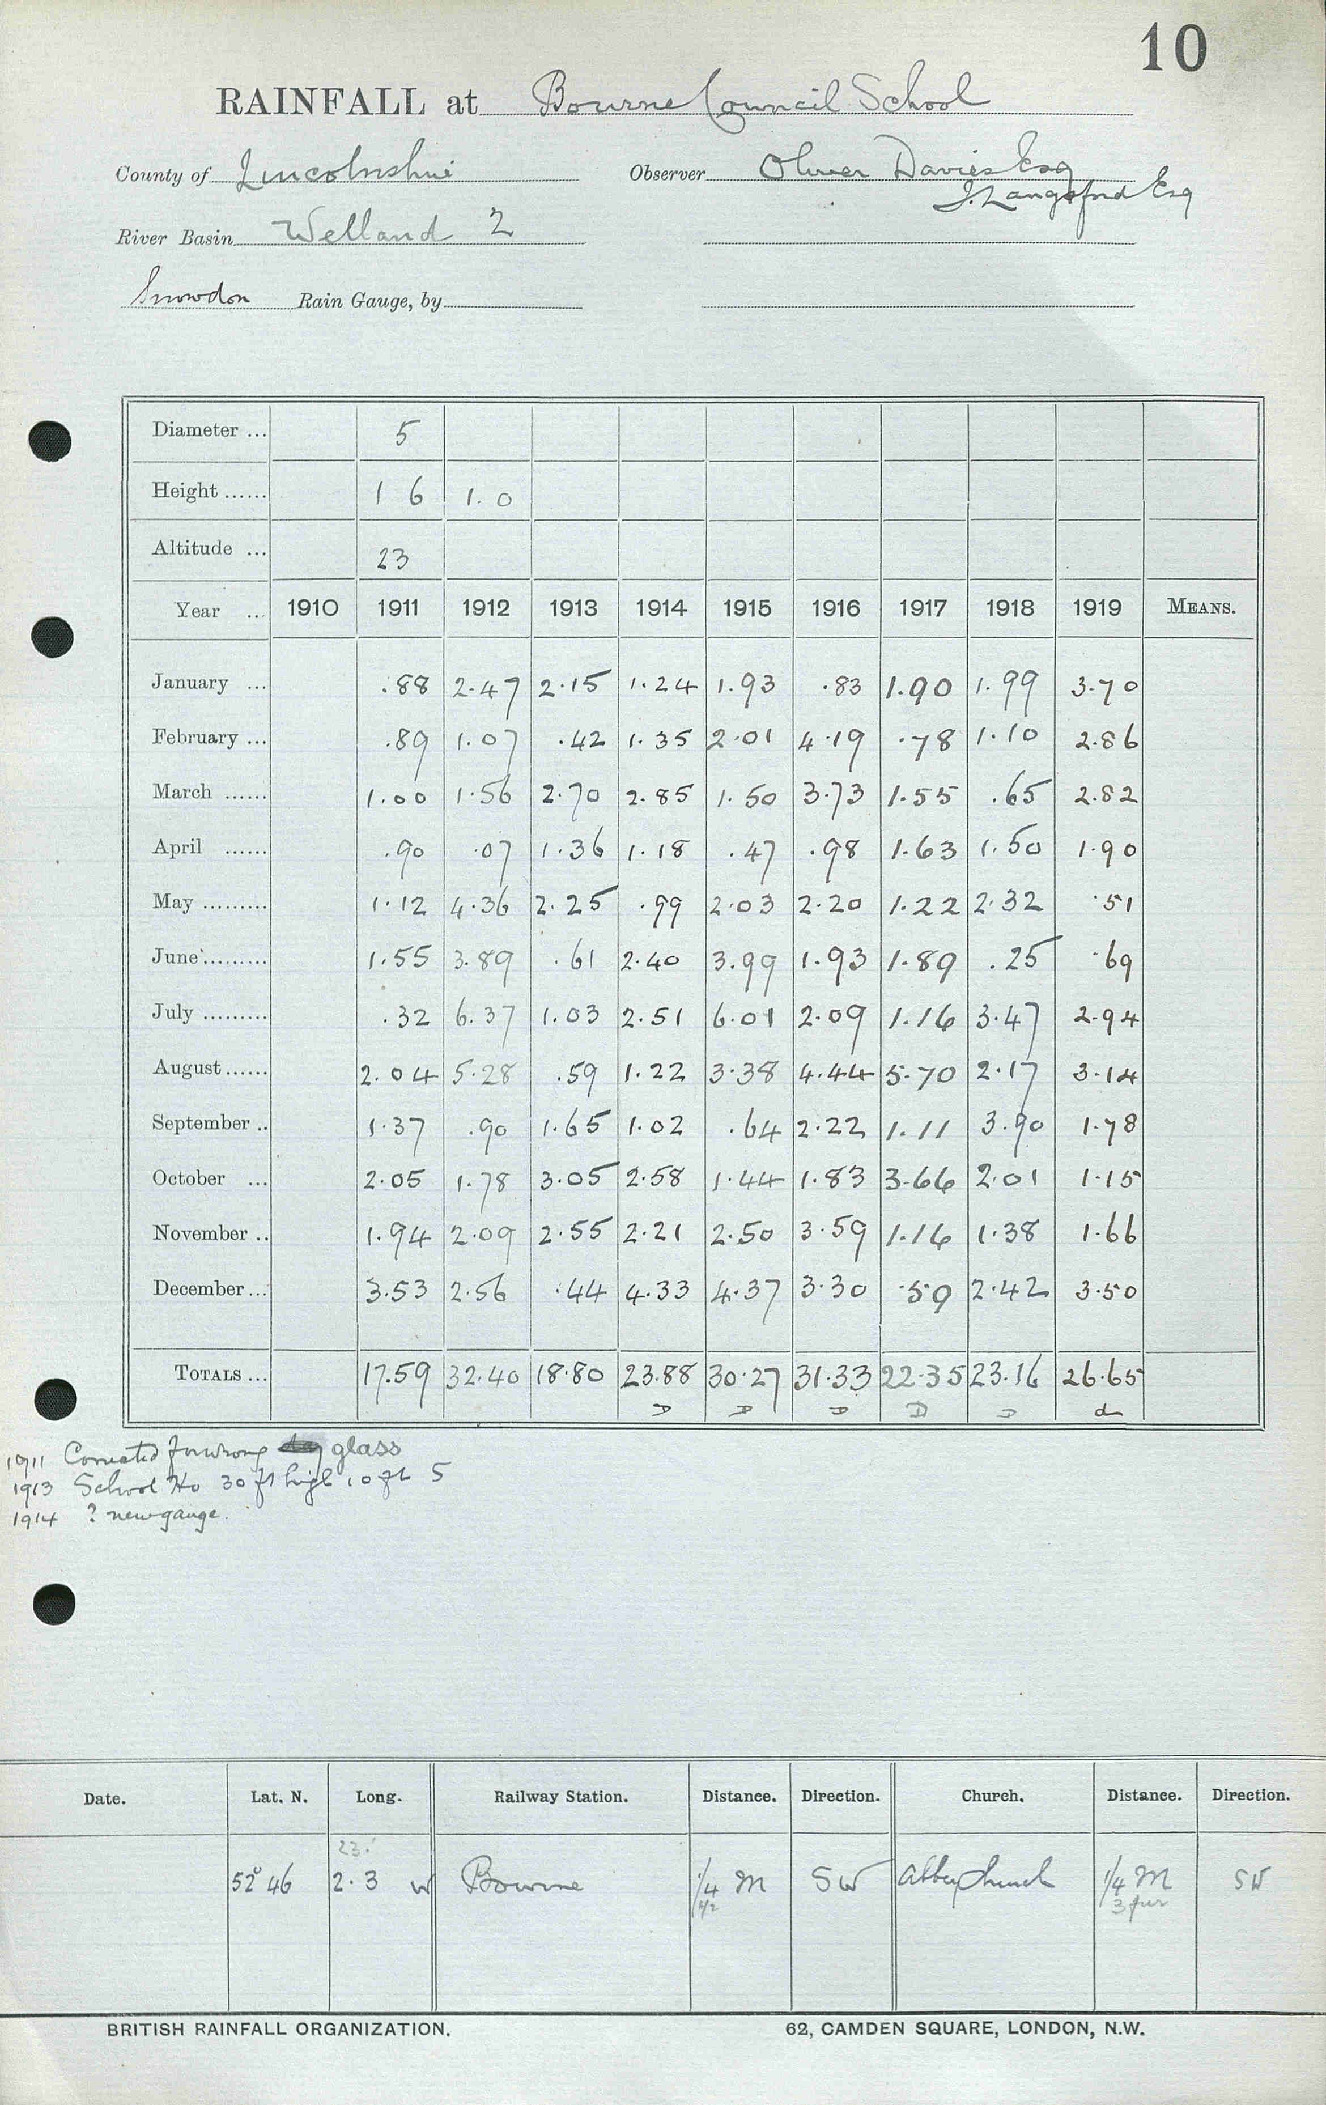 10
RAINFALL at Bourne Council School
County of Lincolnshire Observer Oliver Davies Esq
J. Langsford Esq
River Basin Welland 2
Snowdon Rain Gauge, by
Diameter ... 5
Height ...... 1 6 1. 0
Altitude ... 23
Year ... 1910 1911 1912 1913 1914 1915 1916 1917 1918 1919 MEANS.
January ... .88 2.47 2.15 1.24 1.93 .83 1.90 1.99 3.70
February ... .89 1.07 .42 1.35 2.01 4.19 .78 1.10 2.86
March ...... 1.00 1.56 2.70 2.85 1.50 3.73 1.55 .65 2.82
April ...... .90 .07 1.36 1.18 .47 .98 1.63 1.50 1.90
May ......... 1.12 4.36 2.25 .99 2.03 2.20 1.22 2.32 .51
June ......... 1.55 3.89 .61 2.40 3.99 1.93 1.89 .25 .69
July ......... .32 6.37 1.03 2.51 6.01 2.09 1.16 3.47 2.94
August ...... 2.04 5.28 .59 1.22 3.38 4.44 5.70 2.17 3.14
September .. 1.37 .90 1.65 1.02 .64 2.22 1.11 3.90 1.78
October ... 2.05 1.78 3.05 2.58 1.44 1.83 3.66 2.01 1.15
November .. 1.94 2.09 2.55 2.21 2.50 3.59 1.16 1.38 1.66
December ... 3.53 2.56 .44 4.33 4.37 3.30 .59 2.42 3.50
TOTALS ... 17.59 32.40 18.80 23.88 30.27 31.33 22.35 23.16 26.65
D D D D D d
1911 Corrected for wrong glass
1913 School Ho 30 ft high 10 ft S
1914 ? new gauge.
Date. Lat. N. Long. Railway Station. Distance. Direction. Church. Distance. Direction.
23.
52° 46 2.3 W Bourne 1/4 M SW Abbey Church 1/4 M SW
1/2 3 fur
BRITISH RAINFALL ORGANIZATION. 62, CAMDEN SQUARE, LONDON, N.W.